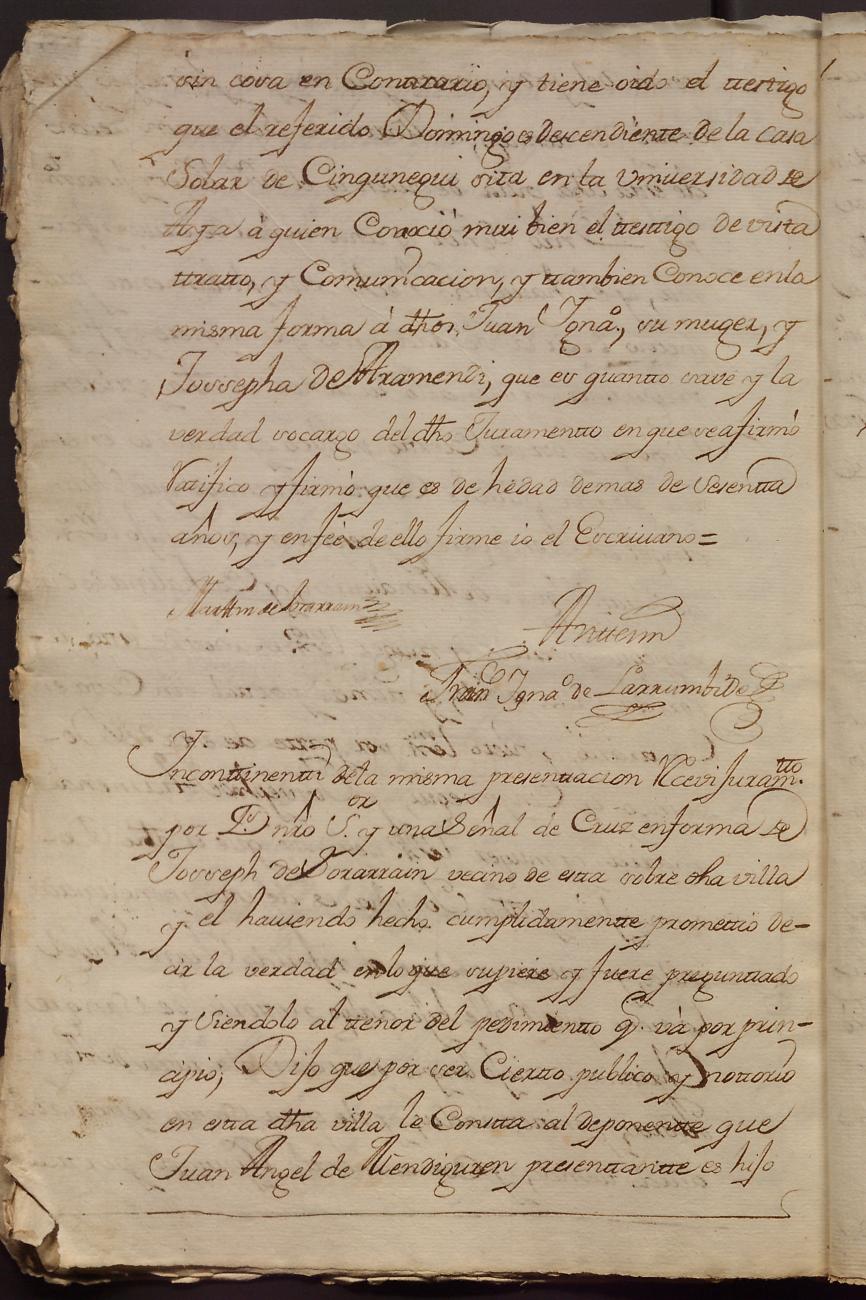 sin cosa en Contrario, y tiene oido el ttestigo
que el referido Domingo es descendiente de la casa
Solar de Cingunegui sita en la Vniuersidad de
Aya à quien Conoció mui bien el ttestigo de vista
ttratto, y Comunicacion, y ttambien Conoce enla
misma forma à dhos, Juan Ignaº, su muger, y
Jossepha de Aramendi, que es quantto save y la
verdad socargo del dho Juramentto en que se afirmó
Ratifico y firmó que es de hedad demas de Sesentta
años, y en feé de ello firme io el Escriuano =
Anttemi
Franº Ignaº de Larrumbide
Yncontinentti dela misma presenttacion Rcevi Juramtto
por D. nrô S.or y una Señal de Cruz enforma de
Josseph de vecino de esta sobre dha villa
y el hauiendo hecho cumplidamentte promettio de-
cir la verdad enlo que supiere y fuere preguntado
y Siendolo al ttenor del pedimientto q. và por prin-
cipio; Dijo que por ser Ciertto publico y nottorio
en esta dha villa le Constta al deponentte que
Juan Angel de Mendiguren presenttantte es hijo